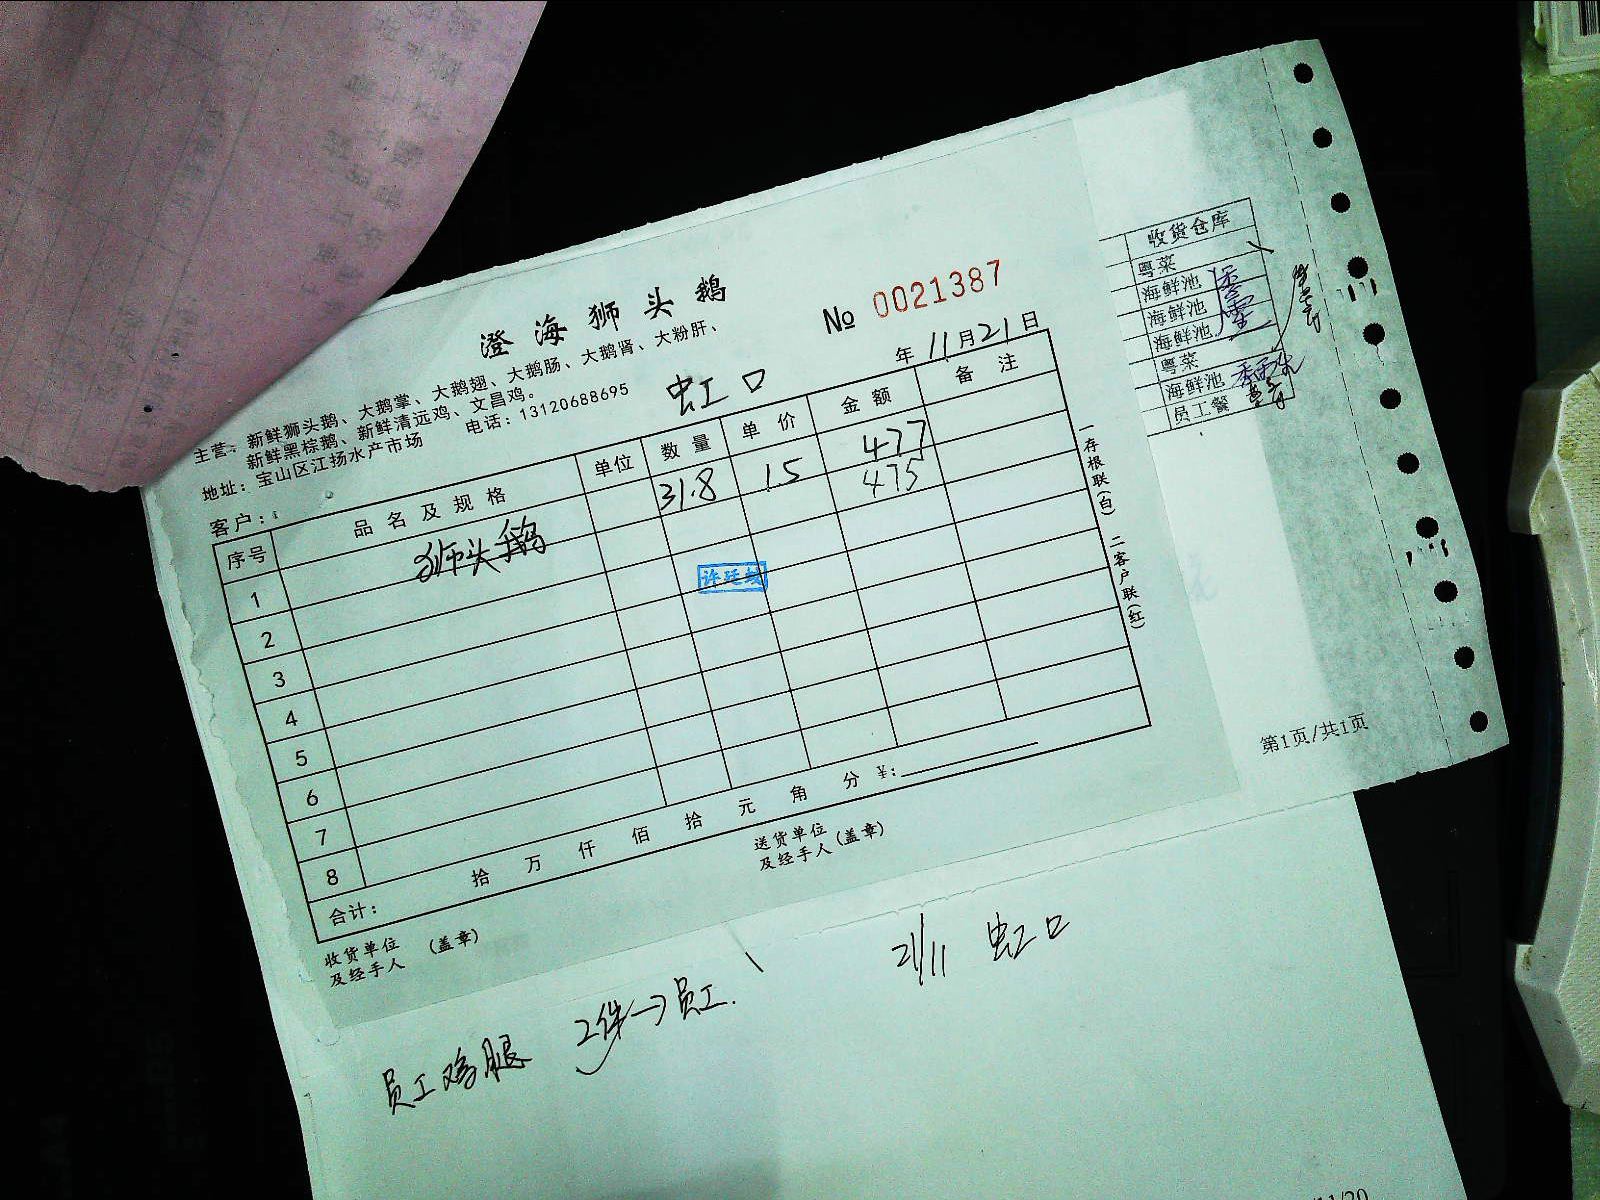 澄海狮头鹅
№ 0021387
主营：新鲜狮头鹅、大鹅掌、大鹅翅、大鹅肠、大鹅肾、大粉肝、
新鲜黑棕鹅、新鲜清远鸡、文昌鸡。
地址：宝山区江扬水产市场 电话：13120688695
客户： 虹口 年 11月21日
序号 品名及规格 单位 数量 单价 金额 备注
1 狮头鹅 31.8 15 477
475
2
3
4
5
6
7
8
合计： 拾 万 仟 佰 拾 元 角 分 ¥:
收货单位 (盖章)
及经手人
送货单位
及经手人 (盖章)
一存根联(白) 二客户联(红)
收货仓库
粤菜
海鲜池
海鲜池
海鲜池
粤菜
海鲜池
员工餐
第1页/共1页
21/11 虹口
员工鸡腿 2件→员工.
11/20